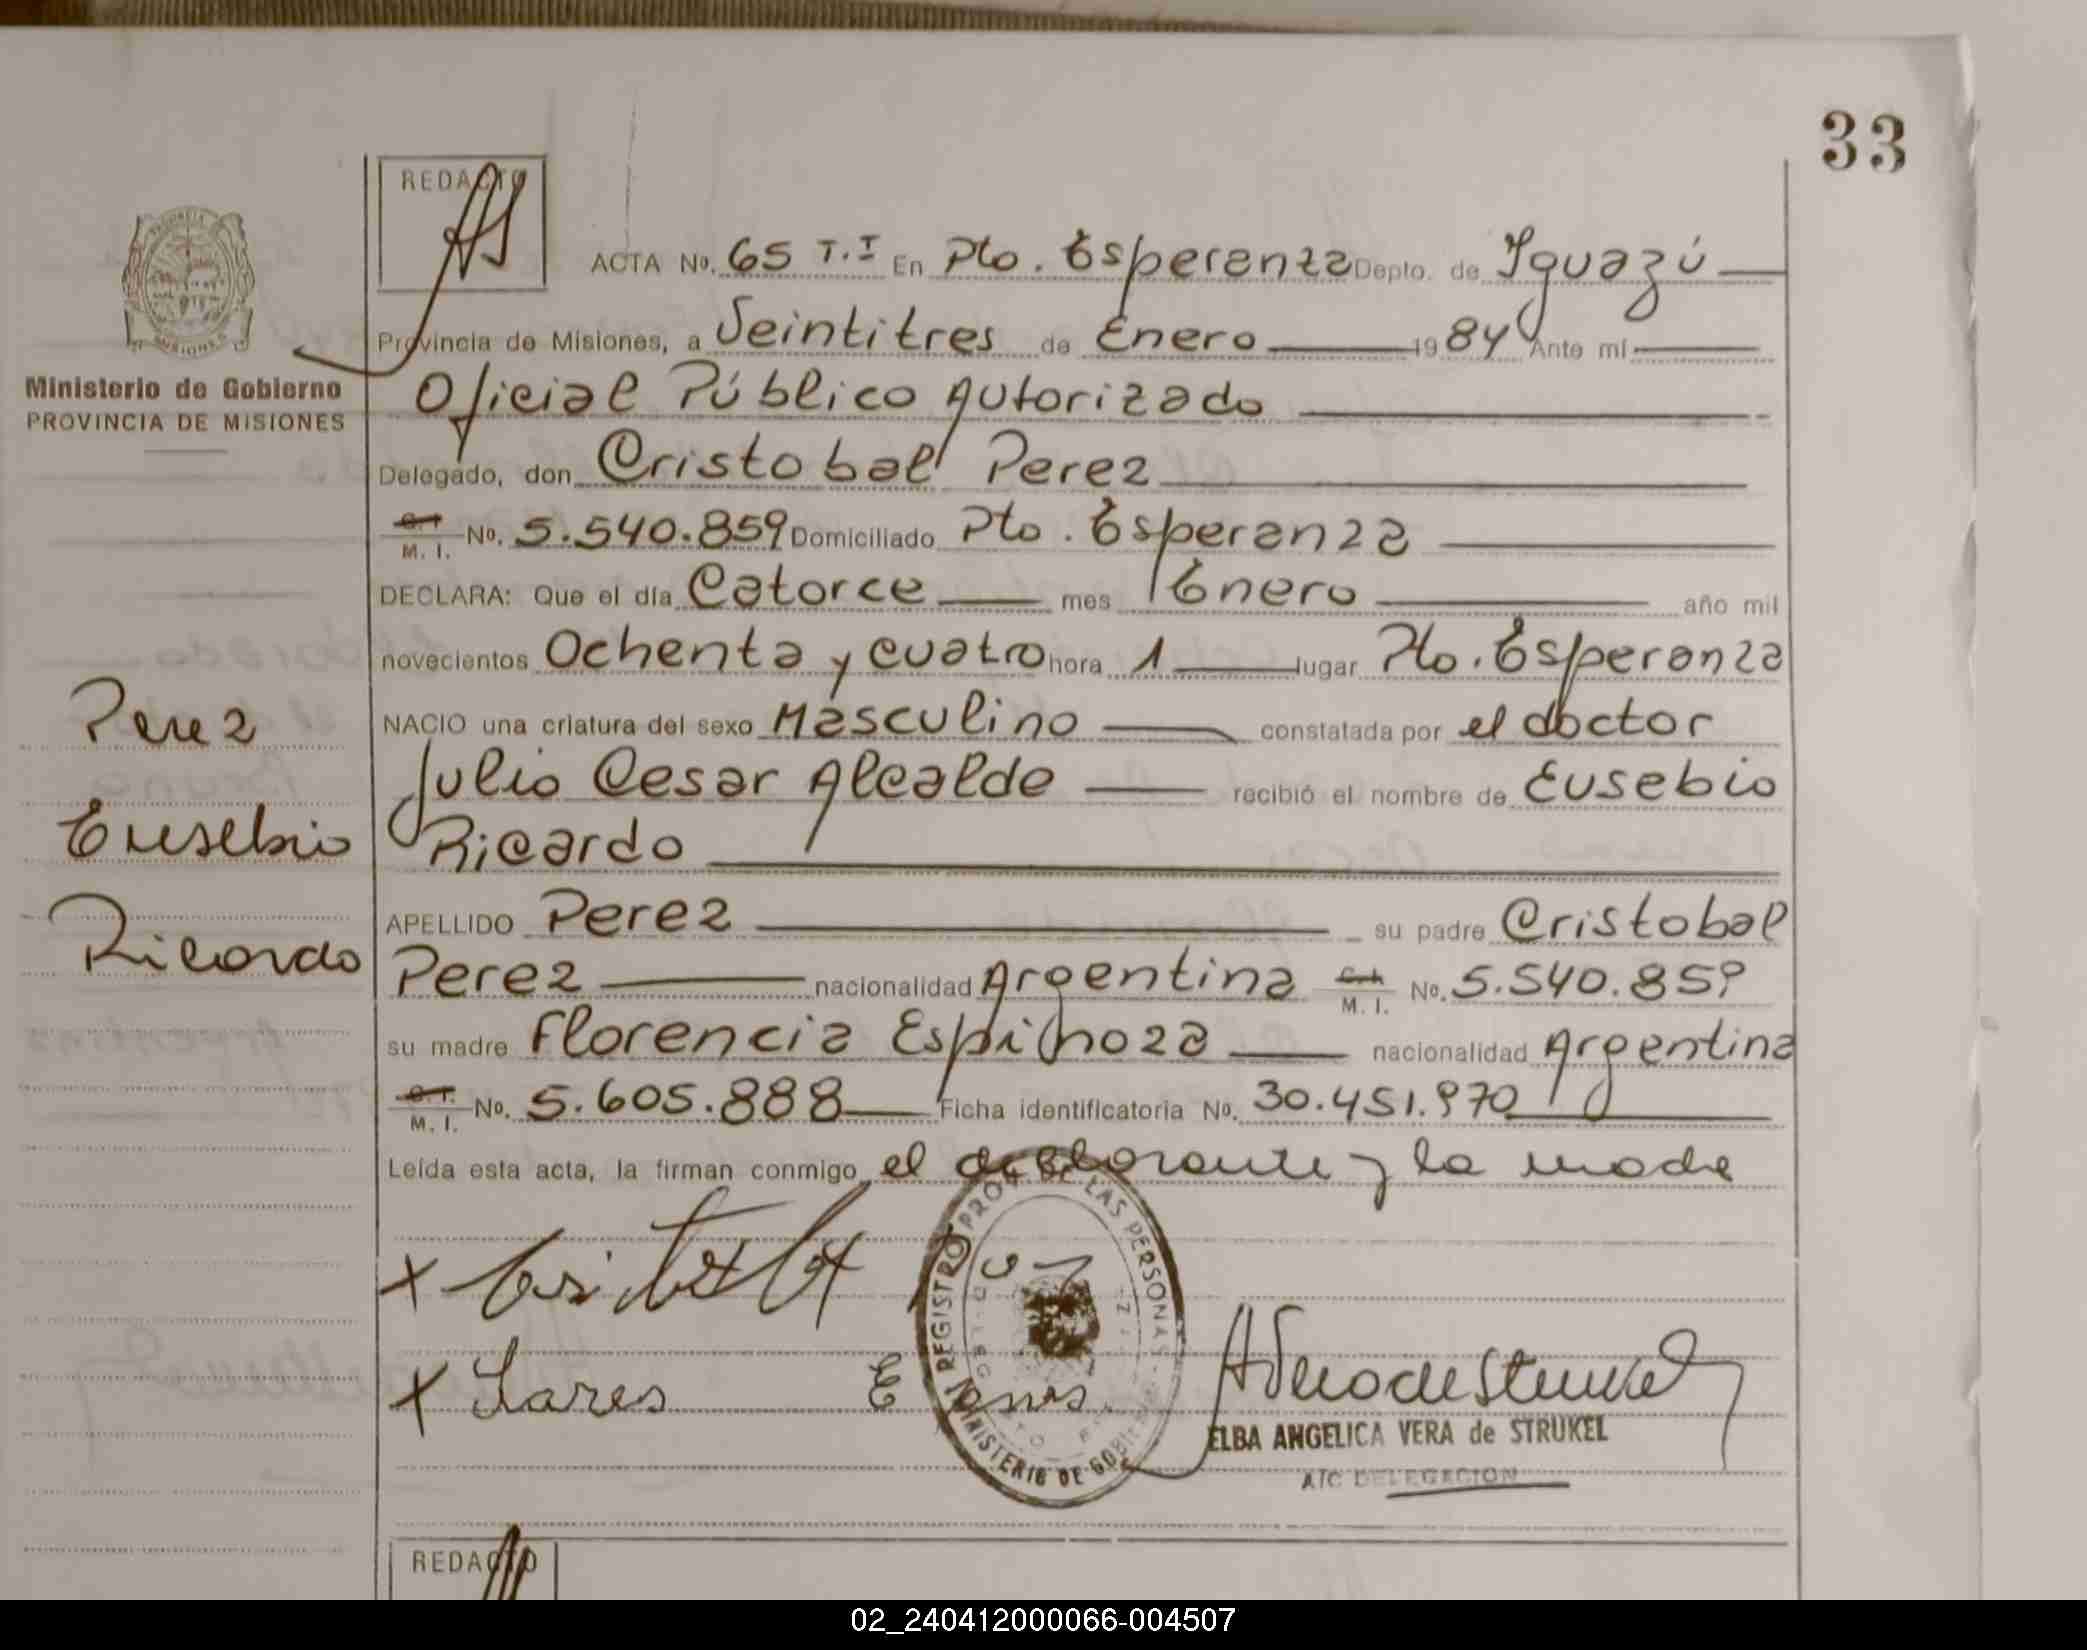 33
REDACTO
ACTA No. 65 T.I En Pto. Esperanza Depto. de Iguazú
Provincia de Misiones, a Veintitres de Enero 1984 Ante mí
Ministerio de Gobierno
PROVINCIA DE MISIONES
Oficial Público Autorizado
Delegado, don Cristobal Perez
C.I. M. I. No. 5.540.859 Domiciliado Pto. Esperanza
DECLARA: Que el día Catorce mes Enero año mil
novecientos Ochenta y cuatro hora 1 lugar Pto. Esperanza
NACIO una criatura del sexo Masculino constatada por el doctor
Julio Cesar Alcalde recibió el nombre de Eusebio
Ricardo
Perez
Eusebio
Ricardo
APELLIDO Perez su padre Cristobal
Perez nacionalidad Argentina C.I. M. I. No. 5.540.859
su madre Florencia Espinoza nacionalidad Argentina
C.I. M. I. No. 5.605.888 Ficha identificatoria No. 30.451.970
Leída esta acta, la firman conmigo el declarante y la madre
REGISTRO PROV. DE LAS PERSONAS
MINISTERIO DE GOBIERNO
ELBA ANGELICA VERA de STRUKEL
A/C DELEGACION
REDACTO
02_240412000066-004507